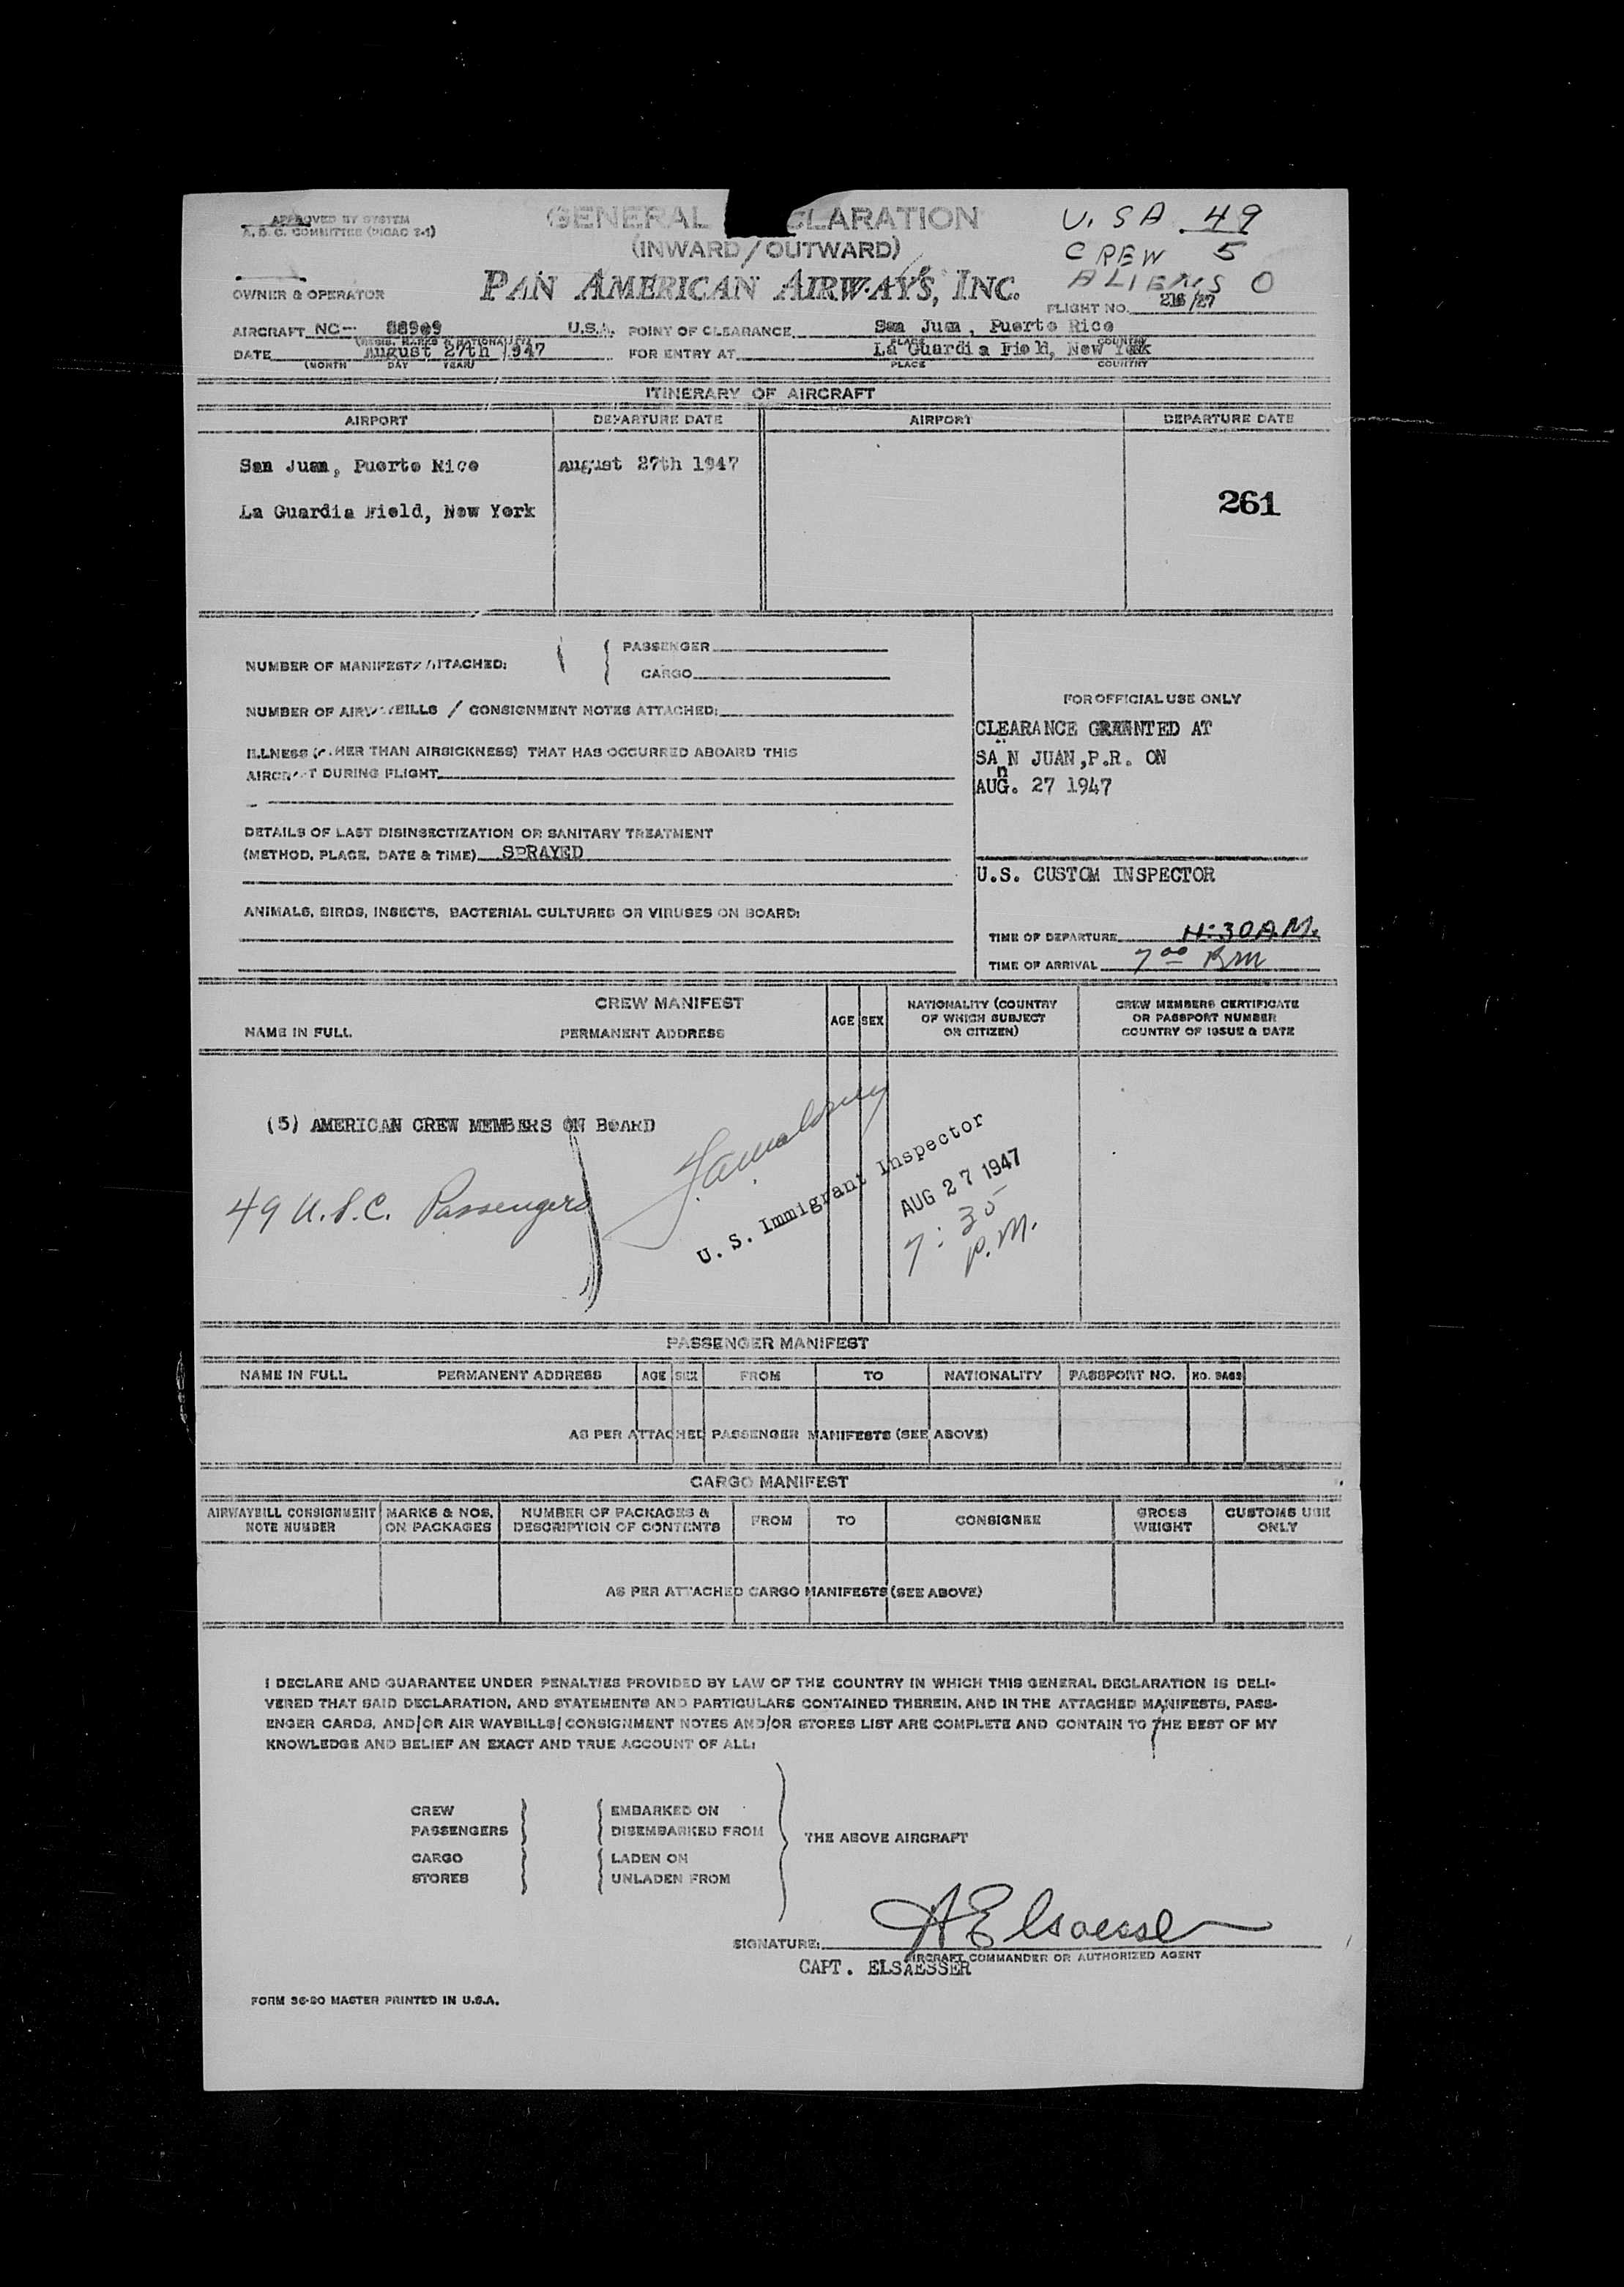 APPROVED BY SYSTEM
A. D. C. COMMITTEE (PICAO 2-1)
GENERAL CLARATION
(INWARD/OUTWARD)
U.SA 49
CREW 5
ALIENS 0
OWNER & OPERATOR
PAN AMERICAN AIRWAYS, INC.
FLIGHT NO. 216/27
AIRCRAFT NC-- 88909 U.S.A. POINT OF CLEARANCE San Juan, Puerto Rico
(REGIS. MARKS & NATIONALITY) PLACE COUNTRY
DATE August 27th 1947 FOR ENTRY AT La Guardia Field, New York
(MONTH DAY YEAR) PLACE COUNTRY
ITINERARY OF AIRCRAFT
AIRPORT DEPARTURE DATE AIRPORT DEPARTURE DATE
San Juan, Puerto Rico August 27th 1947
La Guardia Field, New York
261
NUMBER OF MANIFESTS ATTACHED: PASSENGER
CARGO
NUMBER OF AIRWAYBILLS / CONSIGNMENT NOTES ATTACHED:
ILLNESS (OTHER THAN AIRSICKNESS) THAT HAS OCCURRED ABOARD THIS
AIRCRAFT DURING FLIGHT
DETAILS OF LAST DISINSECTIZATION OR SANITARY TREATMENT
(METHOD, PLACE, DATE & TIME) SPRAYED
ANIMALS, BIRDS, INSECTS, BACTERIAL CULTURES OR VIRUSES ON BOARD:
FOR OFFICIAL USE ONLY
CLEARANCE GRANNTED AT
SA N JUAN,P.R. ON
n
AUG. 27 1947
U.S. CUSTOM INSPECTOR
TIME OF DEPARTURE 11:30 A.M.
TIME OF ARRIVAL 7 00 Pm
CREW MANIFEST
NAME IN FULL PERMANENT ADDRESS AGE SEX NATIONALITY (COUNTRY OF WHICH SUBJECT OR CITIZEN) CREW MEMBERS CERTIFICATE OR PASSPORT NUMBER COUNTRY OF ISSUE & DATE
(5) AMERICAN CREW MEMBERS ON BOARD
49 U.S.C. Passengers
U. S. Immigrant Inspector
AUG 27 1947
7:35
P.M.
PASSENGER MANIFEST
NAME IN FULL PERMANENT ADDRESS AGE SEX FROM TO NATIONALITY PASSPORT NO. NO. BAGS
AS PER ATTACHED PASSENGER MANIFESTS (SEE ABOVE)
CARGO MANIFEST
AIRWAYBILL CONSIGNMENT NOTE NUMBER MARKS & NOS. ON PACKAGES NUMBER OF PACKAGES & DESCRIPTION OF CONTENTS FROM TO CONSIGNEE GROSS WEIGHT CUSTOMS USE ONLY
AS PER ATTACHED CARGO MANIFESTS (SEE ABOVE)
I DECLARE AND GUARANTEE UNDER PENALTIES PROVIDED BY LAW OF THE COUNTRY IN WHICH THIS GENERAL DECLARATION IS DELI-
VERED THAT SAID DECLARATION, AND STATEMENTS AND PARTICULARS CONTAINED THEREIN, AND IN THE ATTACHED MANIFESTS, PASS-
ENGER CARDS, AND/OR AIR WAYBILLS/CONSIGNMENT NOTES AND/OR STORES LIST ARE COMPLETE AND CONTAIN TO THE BEST OF MY
KNOWLEDGE AND BELIEF AN EXACT AND TRUE ACCOUNT OF ALL:
CREW EMBARKED ON
PASSENGERS DISEMBARKED FROM
THE ABOVE AIRCRAFT
CARGO LADEN ON
STORES UNLADEN FROM
SIGNATURE: A Elsaesser
AIRCRAFT COMMANDER OR AUTHORIZED AGENT
CAPT. ELSAESSER
FORM 36-20 MASTER PRINTED IN U.S.A.